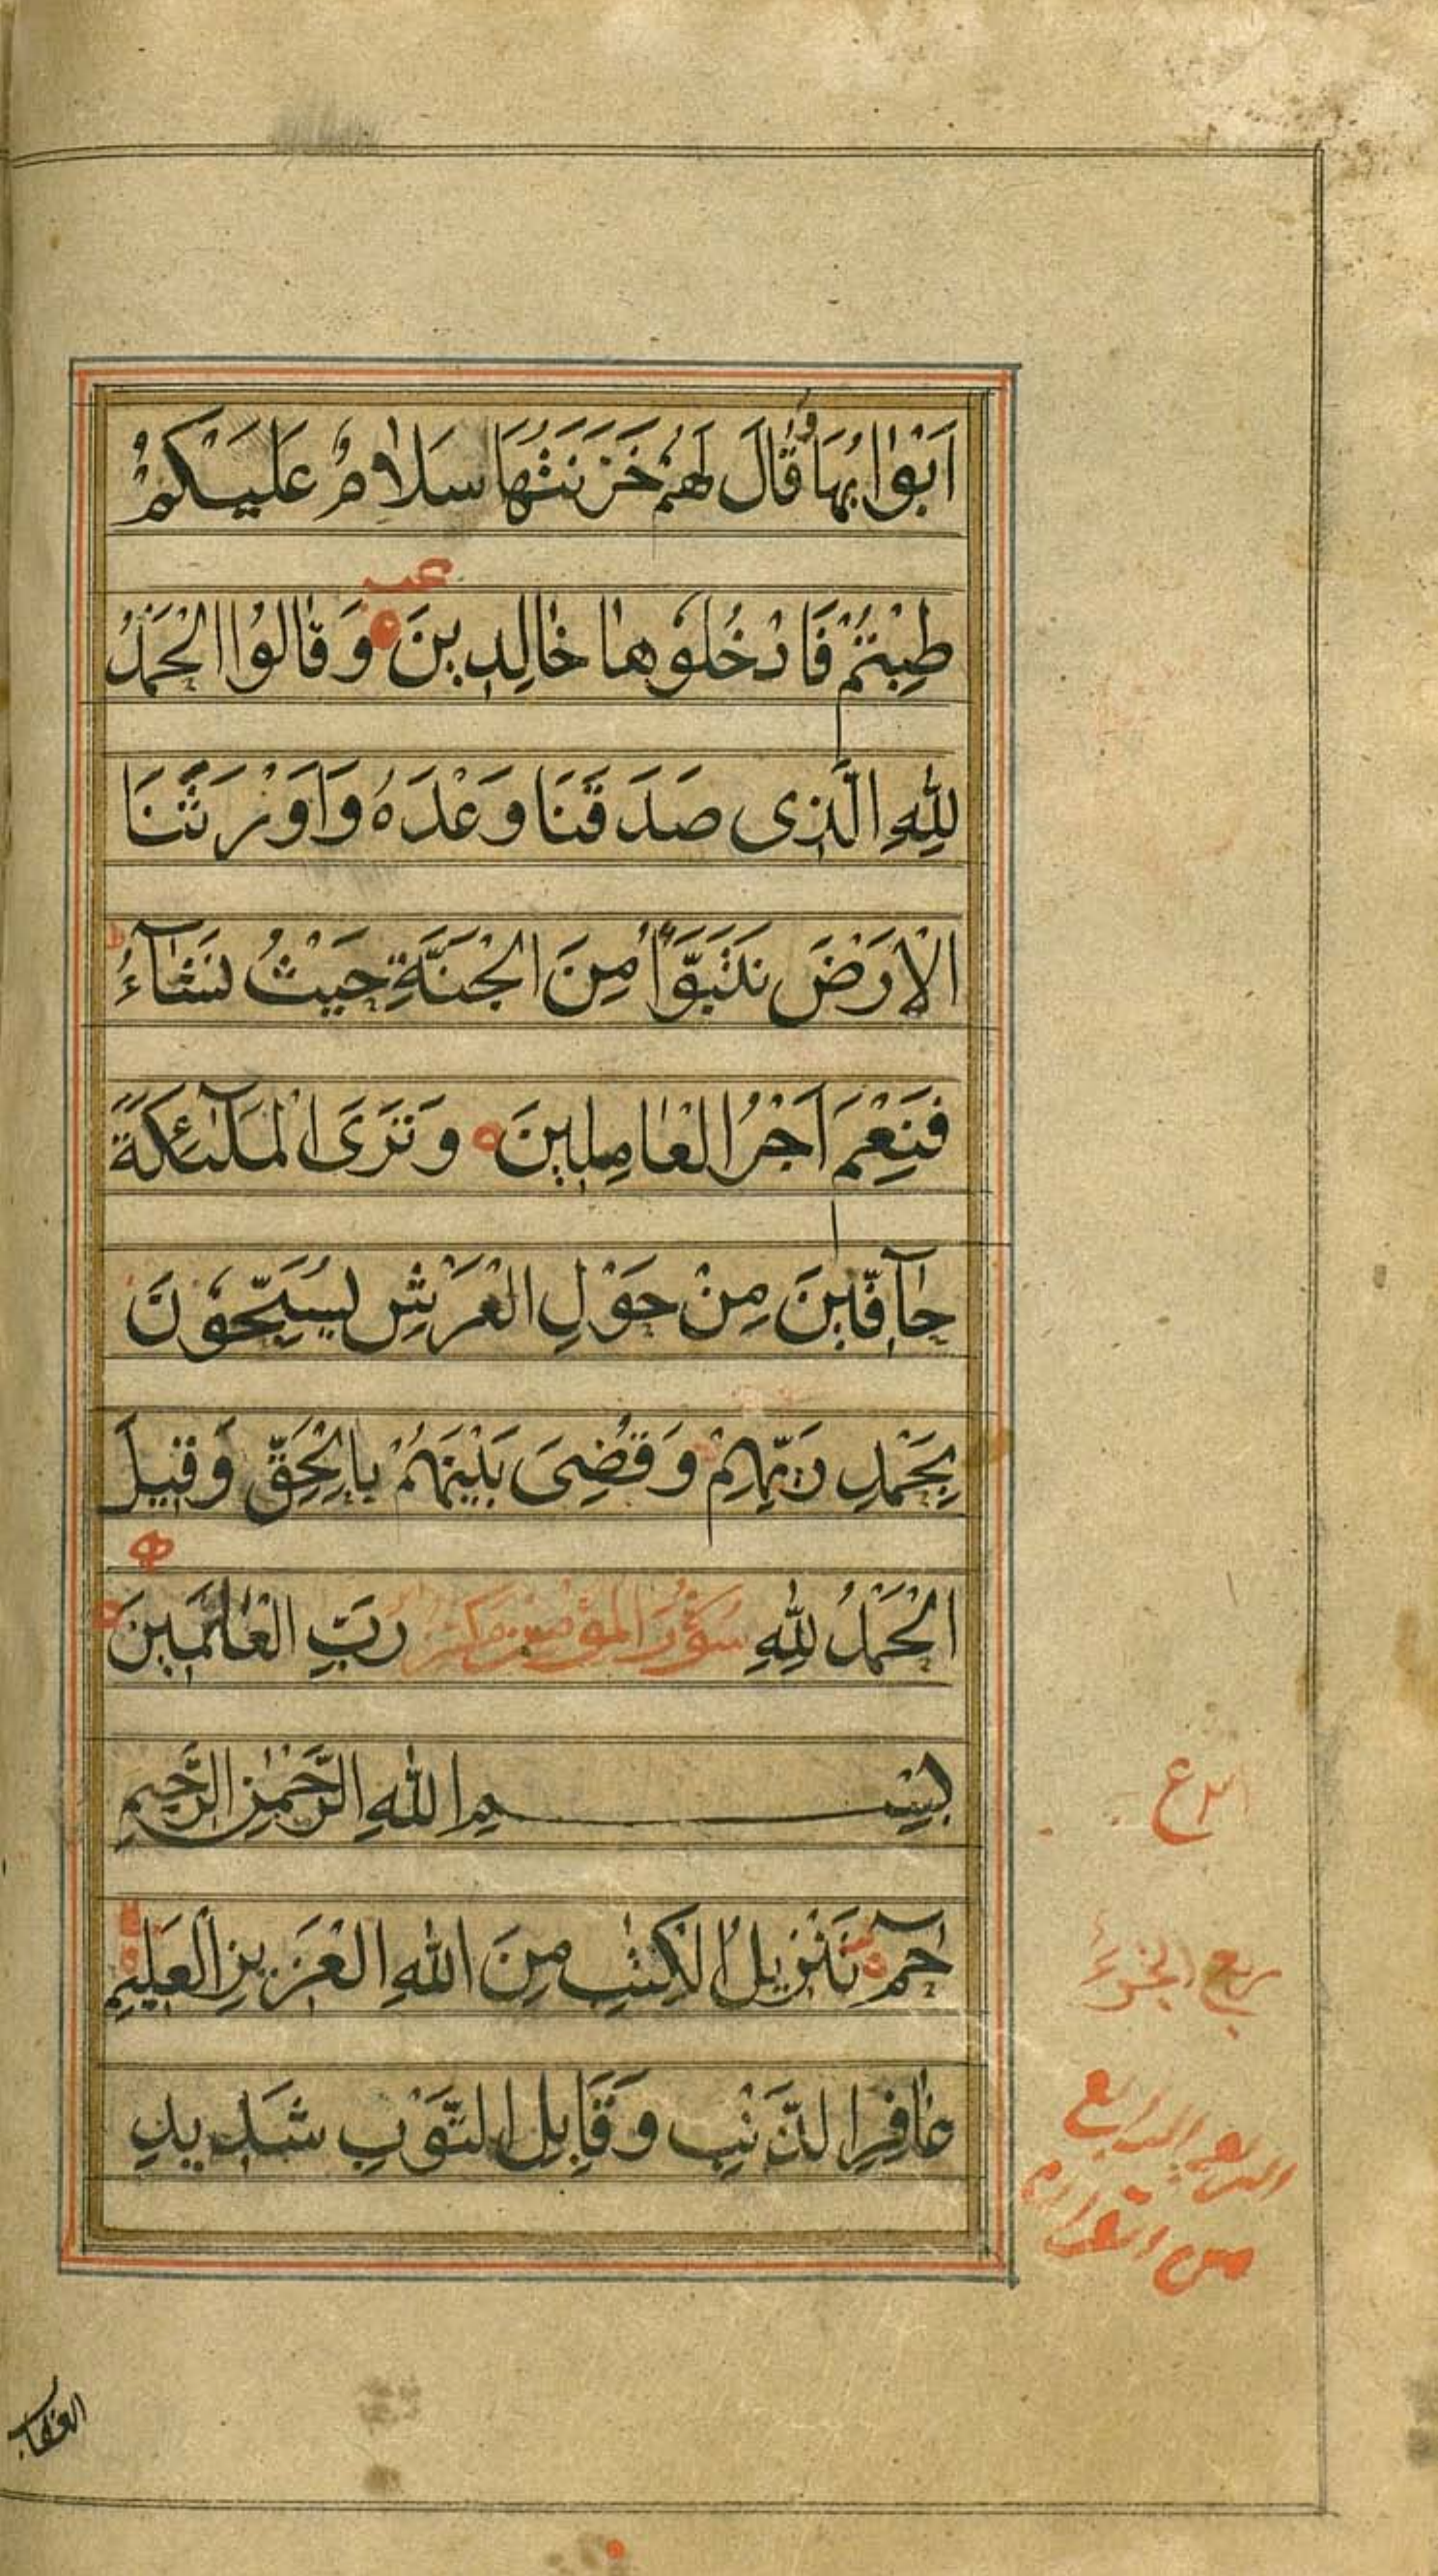 اَبْوٰابُهٰا وَقٰالَ لَهُمْ خَزَنَتُهٰا سَلاٰمٌ عَلَيْكُمْ
عب
طِبْتُمْ فَادْخُلُوْهٰا خٰالِدِينَ وَقٰالُوا الْحَمْدُ
لِلّٰهِ الَّذِى صَدَقَنَا وَعْدَهُ وَاَوْرَثَنَا
الْاَرْضَ نَتَبَوَّاُ مِنَ الْجَنَّةِ حَيْثُ نَشَآءُ ط
فَنِعْمَ اَجْرُ الْعٰامِلِينَ وَتَرَى الْمَلٰٓئِكَةَ
حٰآفِّينَ مِنْ حَوْلِ الْعَرْشِ يُسَبِّحُوْنَ
بِحَمْدِ رَبِّهِمْ وَقُضِىَ بَيْنَهُمْ بِالْحَقِّ وَقِيلَ
الْحَمْدُ لِلّٰهِ سُوْرَةُ الْمُؤْمِنِ رَبِّ الْعٰالَمِينَ
بِسْمِ اللّٰهِ الرَّحْمٰنِ الرَّحِيمِ
حٰمٓ تَنْزِيلُ الْكِتٰبِ مِنَ اللّٰهِ الْعَزِيزِ الْعَلِيمِ
غٰافِرِ الذَّنْبِ وَقَابِلِ التَّوْبِ شَدِيدِ
ربع الجزء
الربع الرابع
من القرآن
العقاب